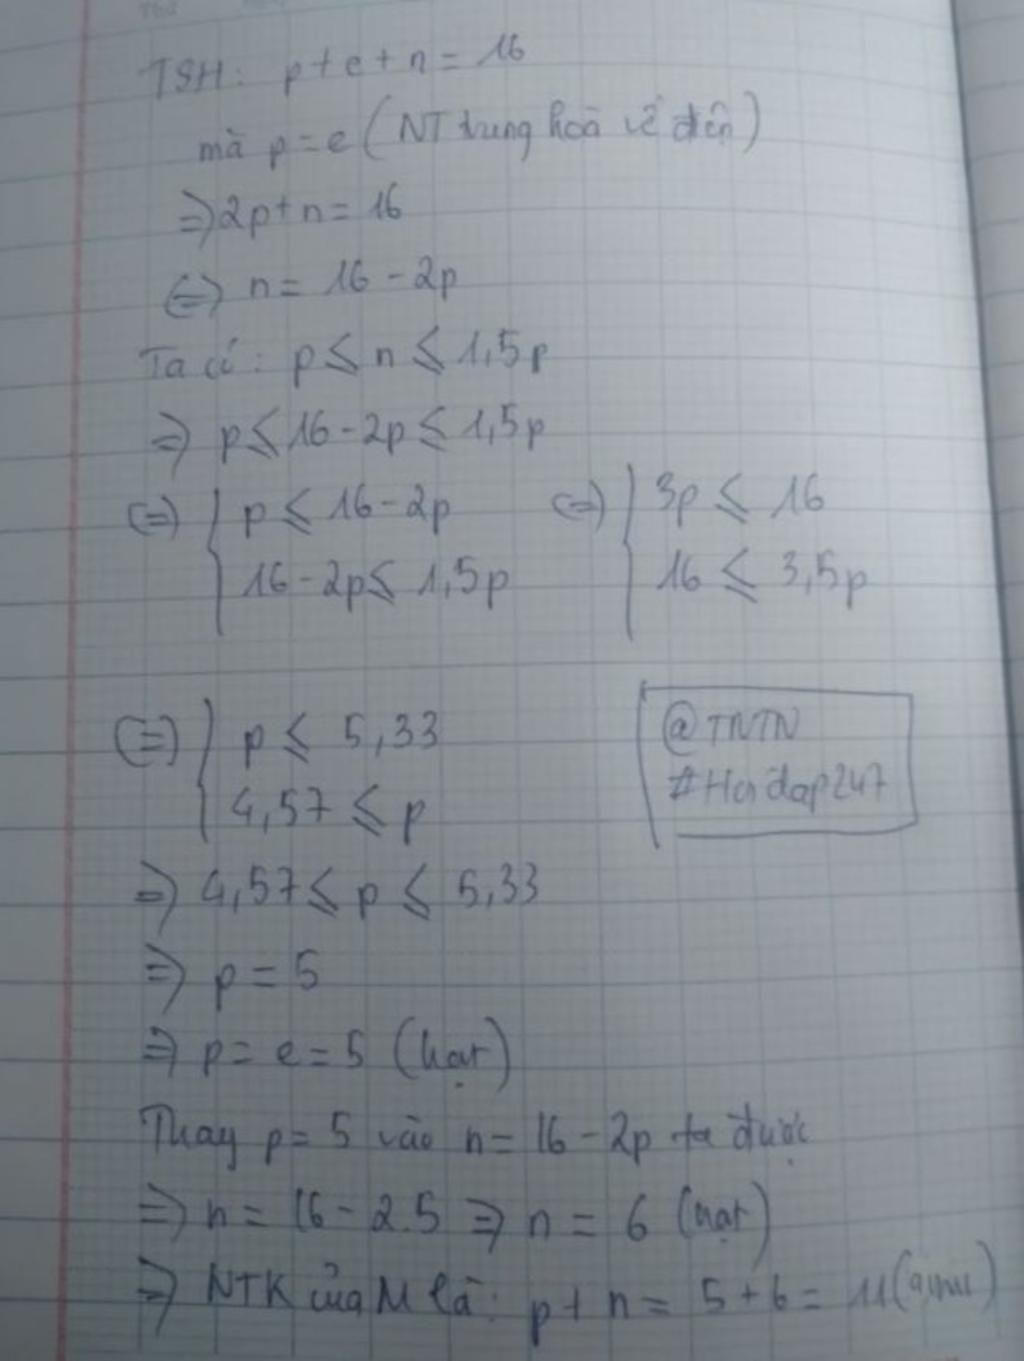 TSH: p + e + n = 16
mà p = e (NT trung hoà về điện)
=> 2p + n = 16
<=> n = 16 - 2p
Ta có: p ⩽ n ⩽ 1,5p
=> p ⩽ 16 - 2p ⩽ 1,5p
(=) { p ⩽ 16 - 2p (=) { 3p ⩽ 16
16 - 2p ⩽ 1,5p 16 ⩽ 3,5p
(=) { p ⩽ 5,33
4,57 ⩽ p
@TNTN
#Hoidap247
=> 4,57 ⩽ p ⩽ 5,33
=> p = 5
=> p = e = 5 (hạt)
Thay p = 5 vào n = 16 - 2p ta được
=> n = 16 - 2.5 => n = 6 (hạt)
=> NTK của M là: p + n = 5 + 6 = 11